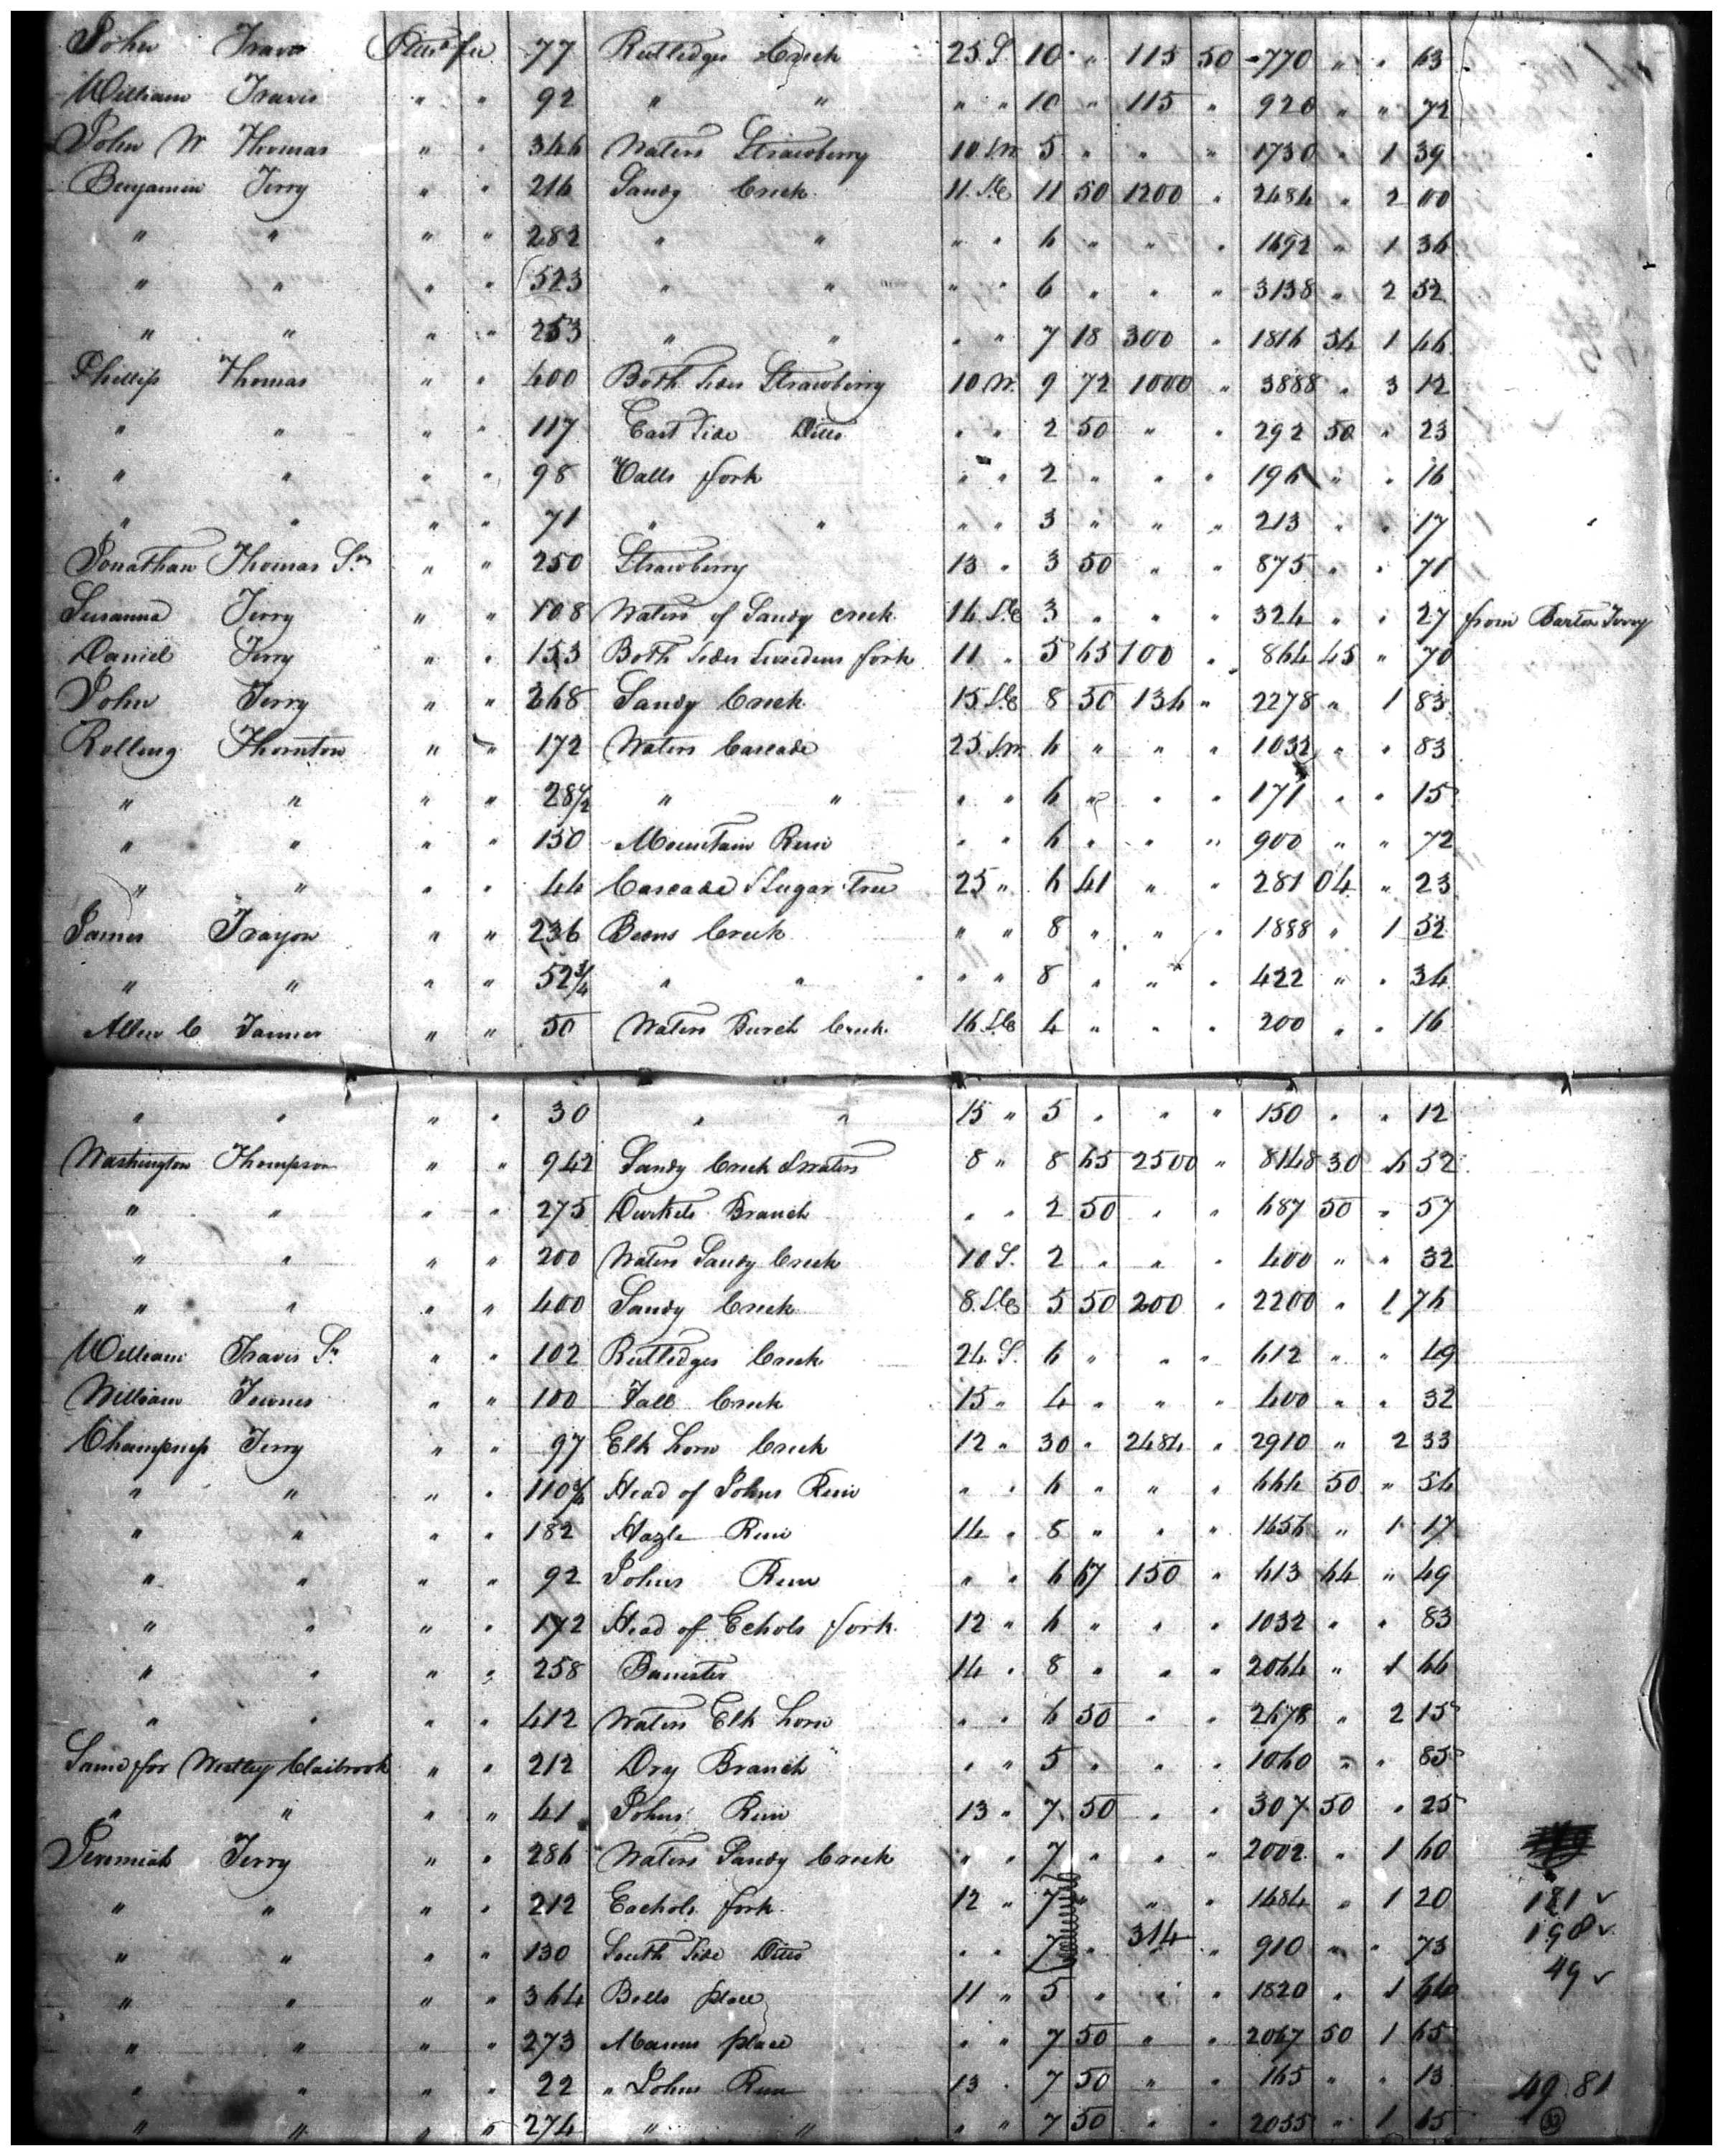 John Travis Pitts? fee 77 Rutledges Creek 25 S. 10 " 115 50 770 " " 63
William Travis " " 92 " " " " 10 " 115 " 920 " " 72
John W Thomas " " 346 Waters Strawberry 10 S.W 5 " " " 1730 " 1 39
Benjamin Terry " " 216 Sandy Creek 11. S.E 11 50 1200 " 2484 " 2 00
" " " " 282 " " " " 6 " " " 1692 " 1 36
" " " " 523 " " " " 6 " " " 3138 " 2 52
" " " " 253 " " " " 7 18 300 " 1816 54 1 46
Phillip Thomas " " 400 Both Sides Strawberry 10 W. 9 72 1000 " 3888 " 3 12
" " " " 117 East Side Ditto " " 2 50 " " 292 50 " 23
" " " " 98 Calls fork " " 2 " " " 196 " " 16
" " " " 71 " " " " 3 " " " 213 " " 17
Jonathan Thomas Sr " " 250 Strawberry 13 " 3 50 " " 875 " " 71
Susanna Terry " " 108 Waters of Sandy creek 14. S.E 3 " " " 324 " " 27 from Barton Terry
Daniel Terry " " 153 Both Sides Sweedens fork 11 " 5 65 100 " 864 45 " 70
John Terry " " 268 Sandy Creek 15 S.E 8 50 136 " 2278 " 1 83
Rolling Thornton " " 172 Waters Cascade 25 S.W. 6 " " " 1032 " " 83
" " " " 28 1/2 " " " " 6 " " " 171 " " 15
" " " " 150 Mountain Run " " 6 " " " 900 " " 72
" " " " 44 Cascade & Sugar Tree 25 " 6 41 " " 281 04 " 23
James Trayon " " 236 Beens Creek " " 8 " " " 1888 " 1 52
" " " " 52 3/4 " " " " 8 " " " 422 " " 34
Allen C Tanner " " 50 Waters Burch Creek 16 S.E 4 " " " 200 " " 16
" " " " 30 " " 15 " 5 " " " 150 " " 12
Washington Thompson " " 942 Sandy Creek & Waters 8 " 8 65 2500 " 8148 30 6 52
" " " " 275 Branch " " 2 50 " " 687 50 " 57
" " " " 200 Waters Sandy Creek 10 S. 2 " " " 400 " " 32
" " " " 400 Sandy Creek 8. S.E 5 50 200 " 2200 " 1 76
William Travis Sr " " 102 Rutledges Creek 24. S. 6 " " " 612 " " 49
William Townes " " 100 Fall Creek 15 " 4 " " " 400 " " 32
Champness Terry " " 97 Elk horn Creek 12 " 30 " 2484 " 2910 " 2 33
" " " " 110 3/4 Head of Johns Run " " 6 " " " 664 50 " 54
" " " " 182 Hazle Run 14 " 8 " " " 1456 " 1 17
" " " " 92 Johns Run " " 6 67 150 " 613 64 " 49
" " " " 172 Head of Echols fork 12 " 6 " " " 1032 " " 83
" " " " 258 Banister 14 " 8 " " " 2064 " 1 66
" " " " 412 Waters Elk horn " " 6 50 " " 2678 " 2 15
Same for Westley Claibrook " " 212 Dry Branch " " 5 " " " 1060 " " 85
" " " " 41 Johns Run 13 " 7 50 " " 307 50 " 25
Jeremiah Terry " " 286 Waters Sandy Creek " " 7 " " " 2002 " 1 60
" " " " 212 Eachols fork 12 " 7 " " " 1484 " 1 20 181 ✓
" " " " 130 South Side Ditto " " 7 " 314 " 910 " " 73 198 ✓
" " " " 364 Bells place 11 " 5 " " " 1820 " 1 46 49 ✓
" " " " 273 Manns place " " 7 50 " " 2047 50 1 65
" " " " 22 " Johns Run 13 " 7 50 " " 165 " " 13 49 81
" " " " 274 " " " " 7 50 " " 2055 " 1 65